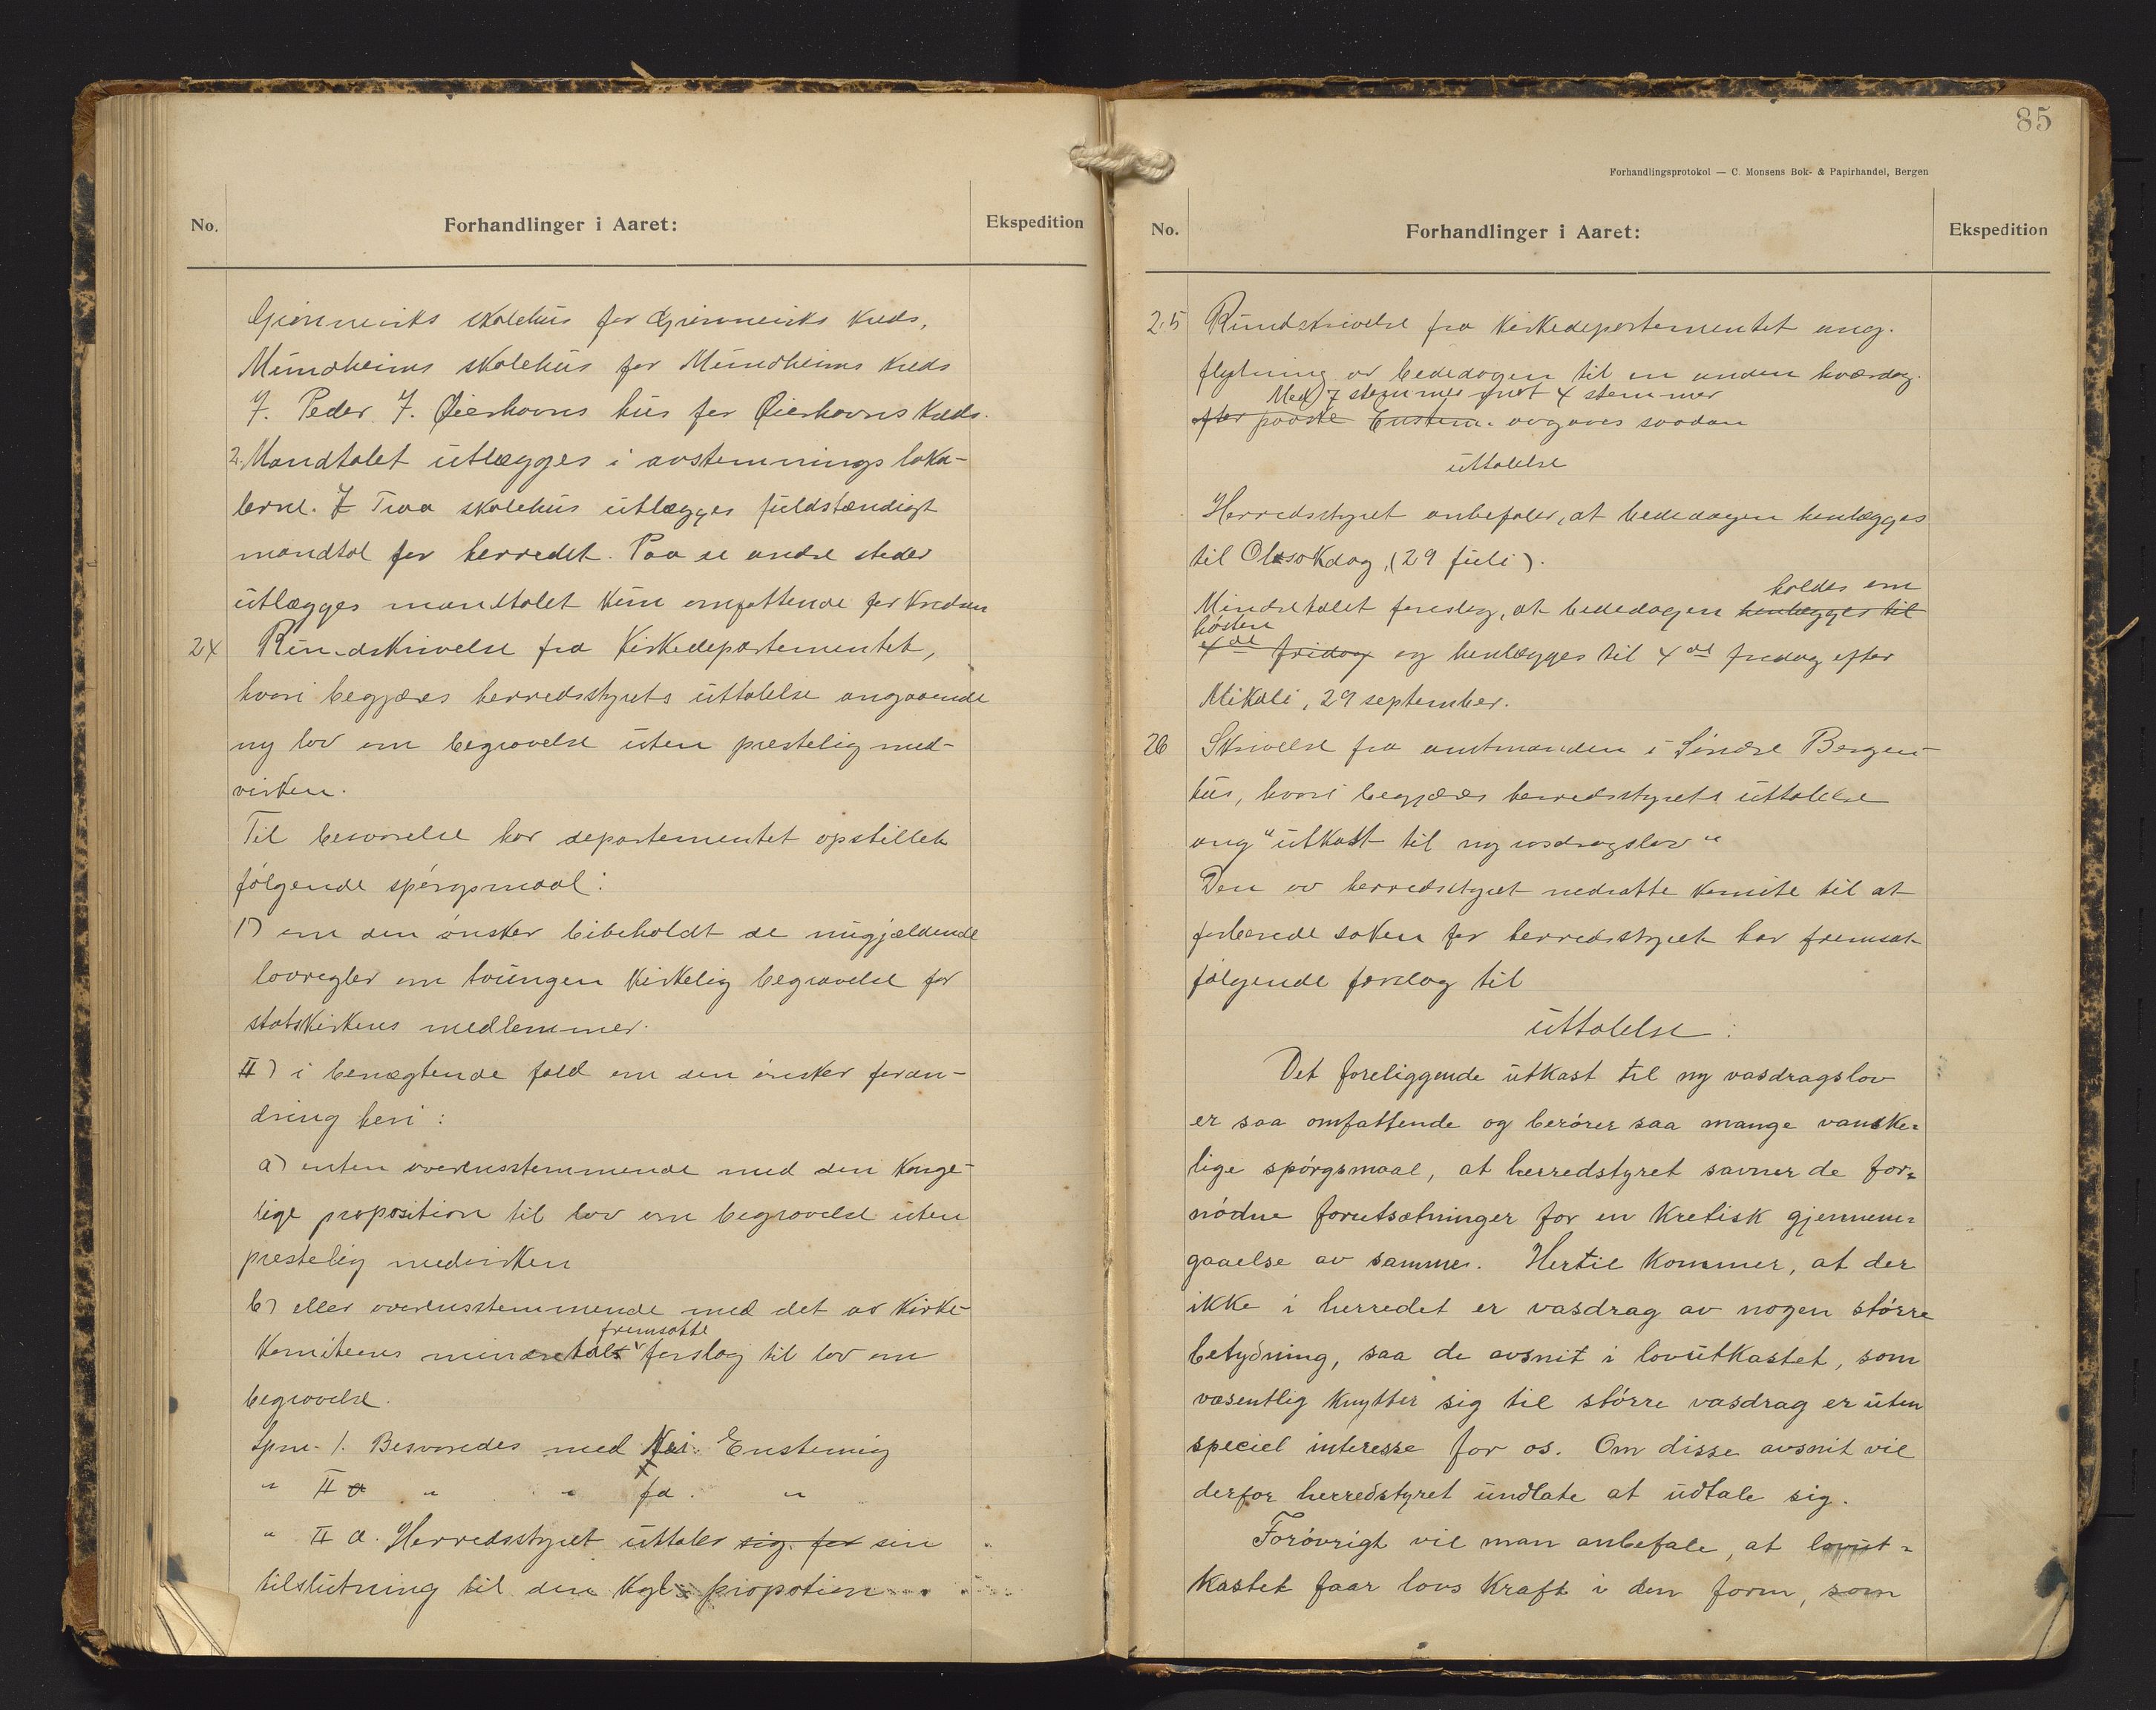 No.
Forhandlinger i Aaret:
Ekspedition
Gjønneviks skolehus for Gjønneviks kreds,
Mundheims skolehus for Mundheims kreds
J. Peder J. Øierhavns hus for Øierhavns kreds.
2. Mandtalet utlægges i avstemningsloka-
lerne. I Tvaa skolehus utlægges fuldstændigt
mandtal for herredet. Paa de andre steder
utlægges mandtalet kun omfattende for kredsen
24 Rundskrivelse fra Kirkedepartementet,
hvori begjæres herredsstyrets uttalelse angaaende
ny lov om begravelse uten prestelig med-
virken.
Til besvarelse har departementet opstillet
følgende spørgsmaal:
1) om den ønsker bibeholdt de nugjældende
lovregler om tvungen kirkelig begravelse for
statskirkens medlemmer.
II) i benægtende fald om den ønsker foran-
dring heri:
a) enten overensstemmende med den konge-
lige proposition til lov om begravelse uten
prestelig medvirken
b) eller overensstemmende med det av kirke-
fremsatte
komiteens mindretals forslag til lov om
begravelse.
Spm. 1. Besvaredes med Nei. Enstemig
" II a " " Ja. "
" II a. Herredsstyret uttaler sig for sin
tilslutning til den kgl. propotion
85
Forhandlingsprotokol — C. Monsens Bok- & Papirhandel, Bergen
No.
Forhandlinger i Aaret:
Ekspedition
25 Rundskrivelse fra kirkedepartementet ang.
flytning av bededagen til en anden hverdag
Med 7 stemmer mot 4 stemmer
efter paaske Enstem. avgaves saadan
uttalelse
Herredsstyret anbefaler, at bededagen henlægges
til Olsokdag, (29 juli).
holdes om
Mindretalet foreslog, at bededagen henlægges til
høsten
4de fridag og henlægges til 4de fredag efter
Mikali, 29 september.
26 Skrivelse fra amtmanden i Søndre Bergen-
hus, hvori begjæres herredsstyrets uttalelse
ang "utkast til ny vasdragslov"
Den av herredsstyret nedsatte komite til at
forberede saken for herredsstyret har fremsat
følgende forslag til
uttalelse:
Det foreliggende utkast til ny vasdragslov
er saa omfattende og berører saa mange vanske-
lige spørgsmaal, at herredstyret savner de for-
nødne forutsætninger for en kretisk gjennem-
gaaelse av samme. Hertil kommer, at der
ikke i herredet er vasdrag av nogen større
betydning, saa de avsnit i lovutkastet, som
væsentlig knytter sig til større vasdrag er uten
speciel interesse for os. Om disse avsnit vil
derfor herredstyret undlate at udtale sig.
Forøvrigt vil man anbefale, at lovut-
kastet faar lovs kraft i den form, som